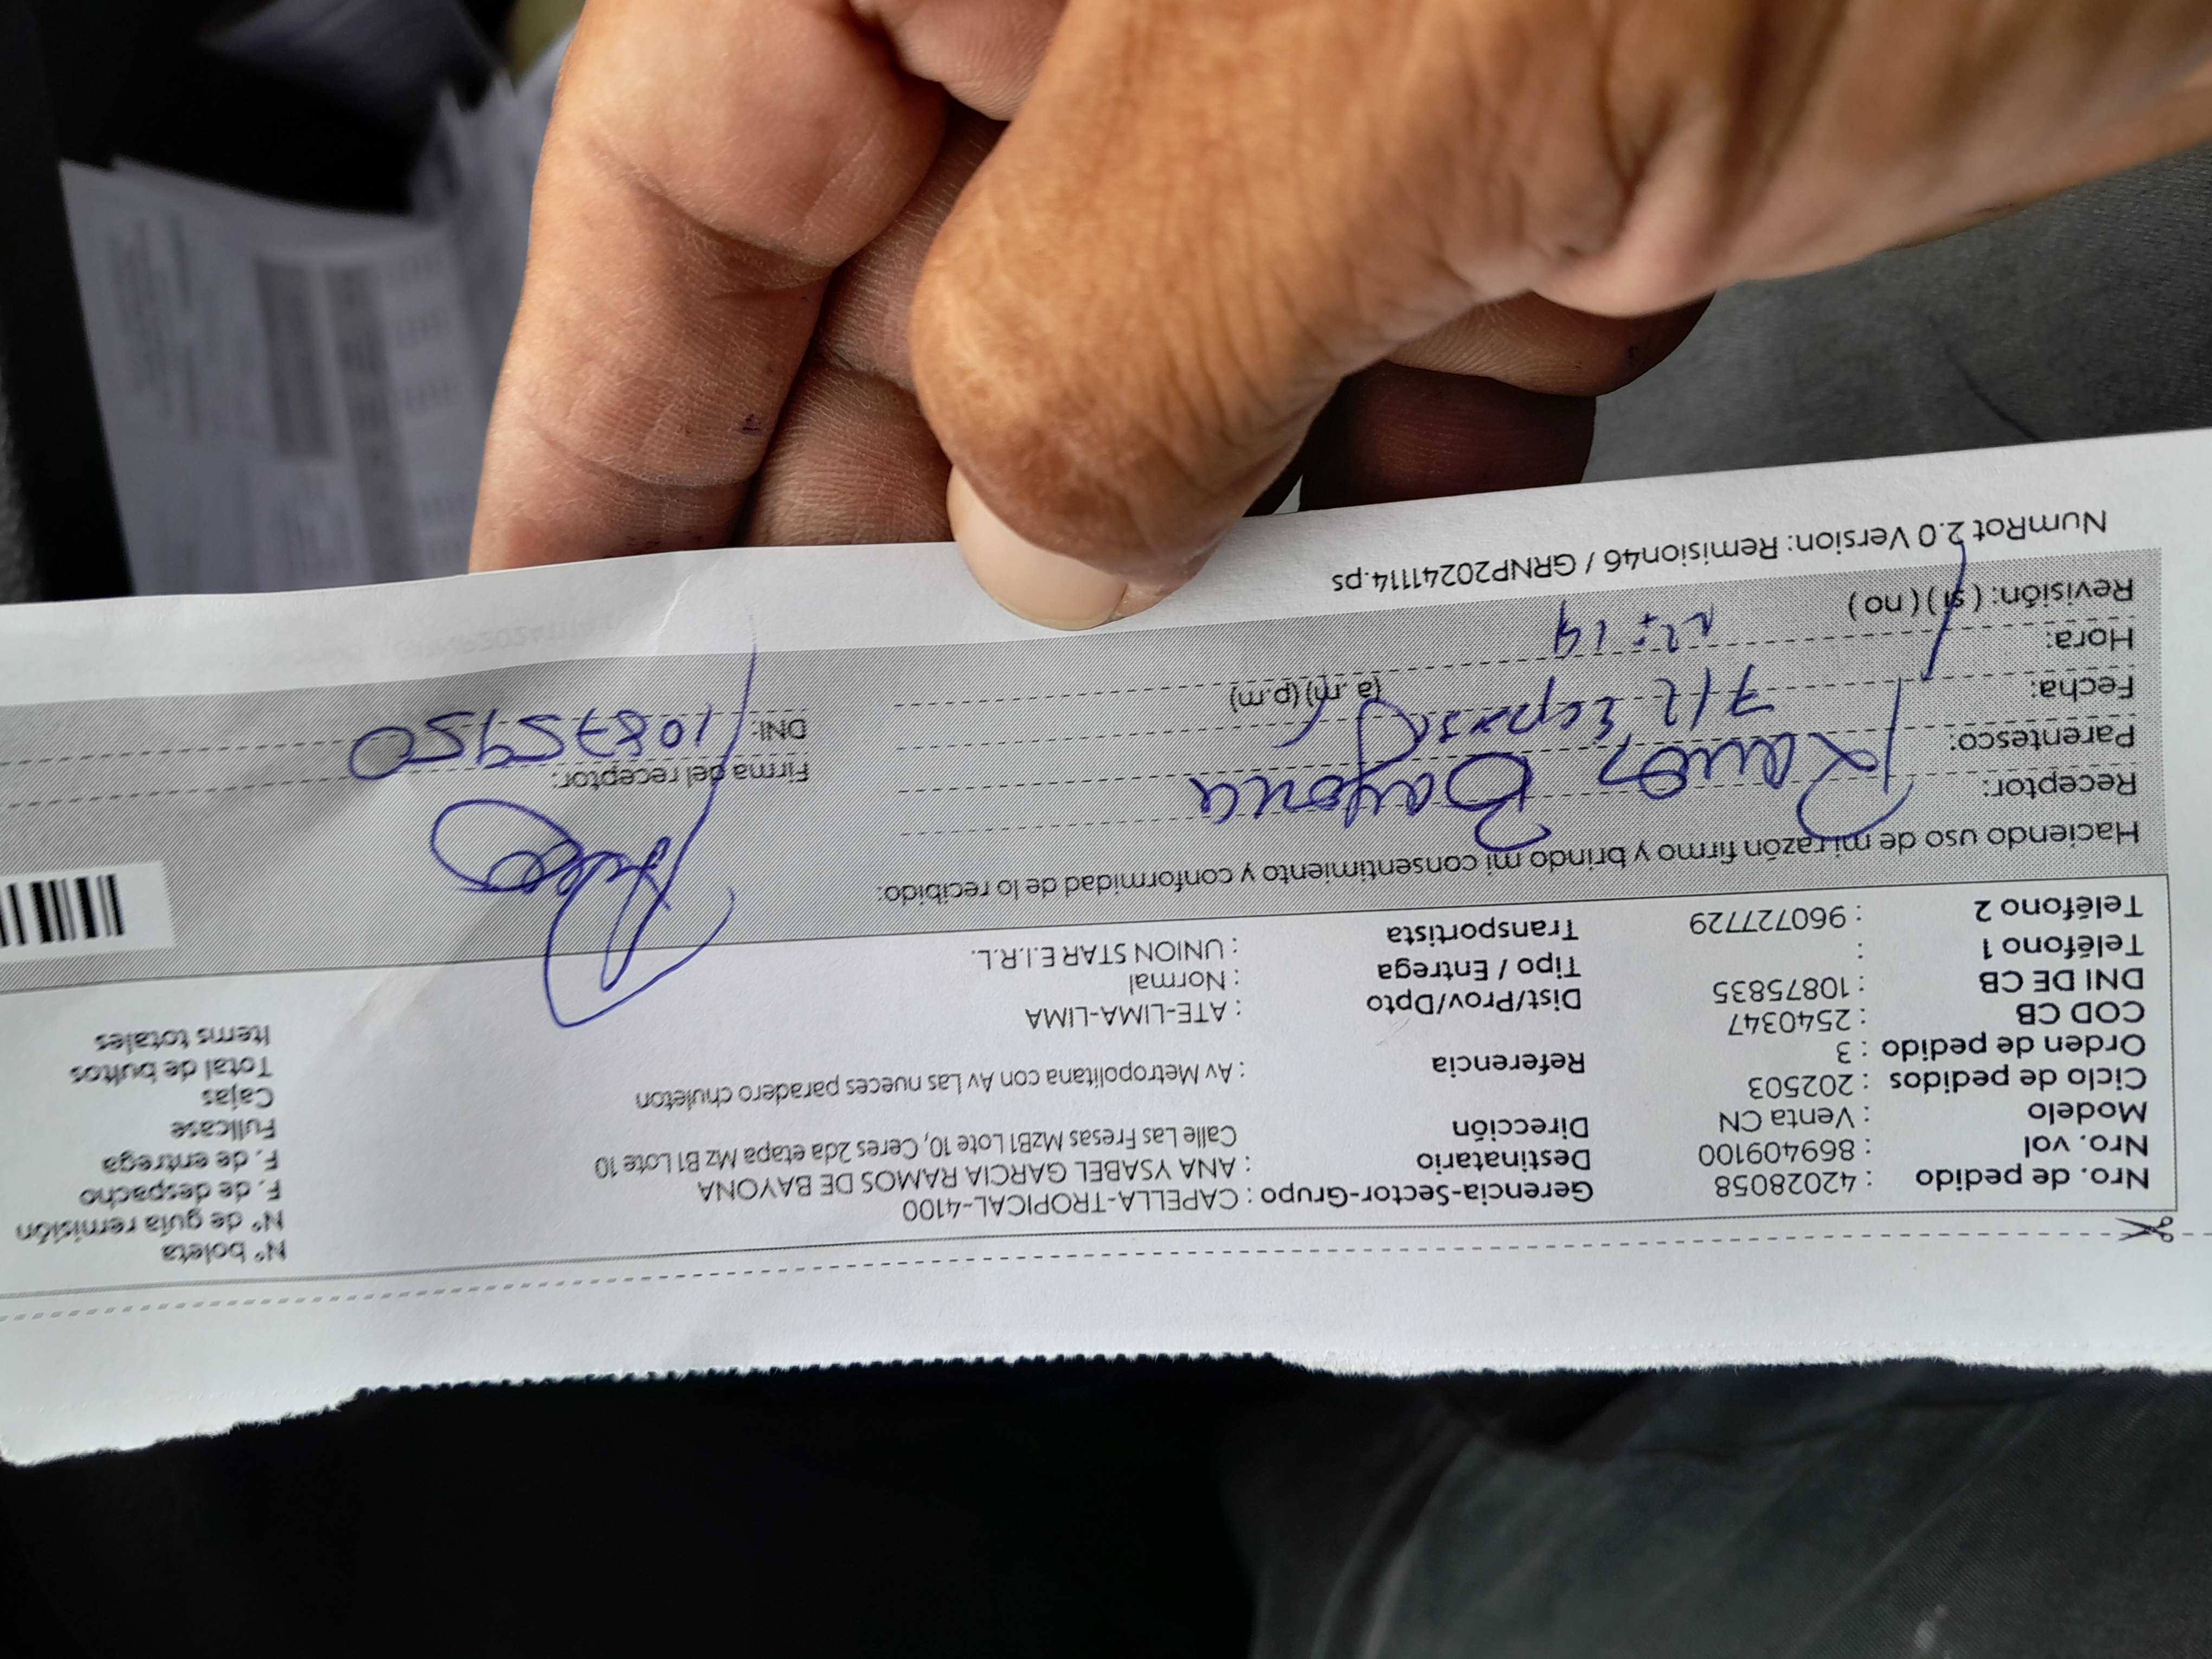 Nro. de pedido : 42028058 Gerencia-Sector-Grupo : CAPELLA-TROPICAL-4100 N° boleta
Nro. vol : 869409100 Destinatario : ANA YSABEL GARCIA RAMOS DE BAYONA N° de guía remisión
Modelo : Venta CN Dirección Calle Las Fresas MzB1 Lote 10, Ceres 2da etapa Mz B1 Lote 10 F. de despacho
Ciclo de pedidos : 202503 F. de entrega
Orden de pedido : 3 Referencia : Av Metropolitana con Av Las nueces paradero chuleton Fullcase
COD CB : 2540347 Cajas
DNI DE CB : 10875835 Dist/Prov/Dpto : ATE-LIMA-LIMA Total de bultos
Teléfono 1 : Tipo / Entrega : Normal Items totales
Teléfono 2 : 960727729 Transportista : UNION STAR E.I.R.L.
Haciendo uso de mi razón firmo y brindo mi consentimiento y conformidad de lo recibido:
Receptor: Bayona
Parentesco: Firma del receptor:
Fecha: 7/2 DNI: 10875950
Hora: 12:14 (a.m) (p.m)
Revisión: ( si ) ( no )
NumRot 2.0 Version: Remision46 / GRNP20241114.ps